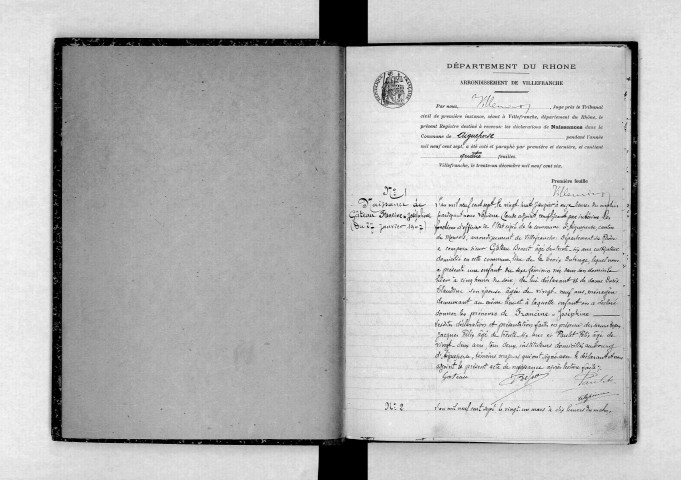 DÉPARTEMENT DU RHONE
ARRONDISSEMENT DE VILLEFRANCHE
Par nous, Juge près le Tribunal
civil de première instance, séant à Villefranche, département du Rhône, le
présent Registre destiné à recevoir les déclarations de Naissances dans la
Commune de Aigueperse pendant l'année
mil neuf cent sept, a été coté et paraphé par première et dernière, et contient
quatre feuilles.
Villefranche, le trente-un décembre mil neuf cent six.
Première feuille
N° 1
Naissance de
Gâteau Francine-Joséphine
(du 27 janvier 1907)
L'an mil neuf cent sept, le vingt huit janvier à onze heures du matin
par devant nous adjoint remplissant par intérim les
fonctions d'officier de l'Etat civil de la commune d'Aigueperse, canton
de Monsols, arrondissement de Villefranche, département du Rhône
a comparu sieur Gâteau Benoit âgé de trente six ans cultivateur
domicilié en cette commune, lieu de la Croix lequel nous
a présenté une enfant du sexe féminin née dans son domicile
hier à cinq heures du soir, de lui déclarant et de dame
Claudine son épouse âgée de vingt neuf ans, ménagère
demeurant au même lieu et à laquelle enfant on a déclaré
donner les prénoms de Francine-Joséphine
Lesdites déclarations et présentation faites en présence de
Jacques Félix âgé de trente six ans et âgé de
vingt deux ans, tous deux instituteurs domiciliés au bourg
d'Aigueperse, témoins majeurs qui ont signé avec le déclarant et nous
adjoint le présent acte de naissance après lecture faite.
Gateau
N° 2
L'an mil neuf cent sept le vingt un mars à dix heures du matin,